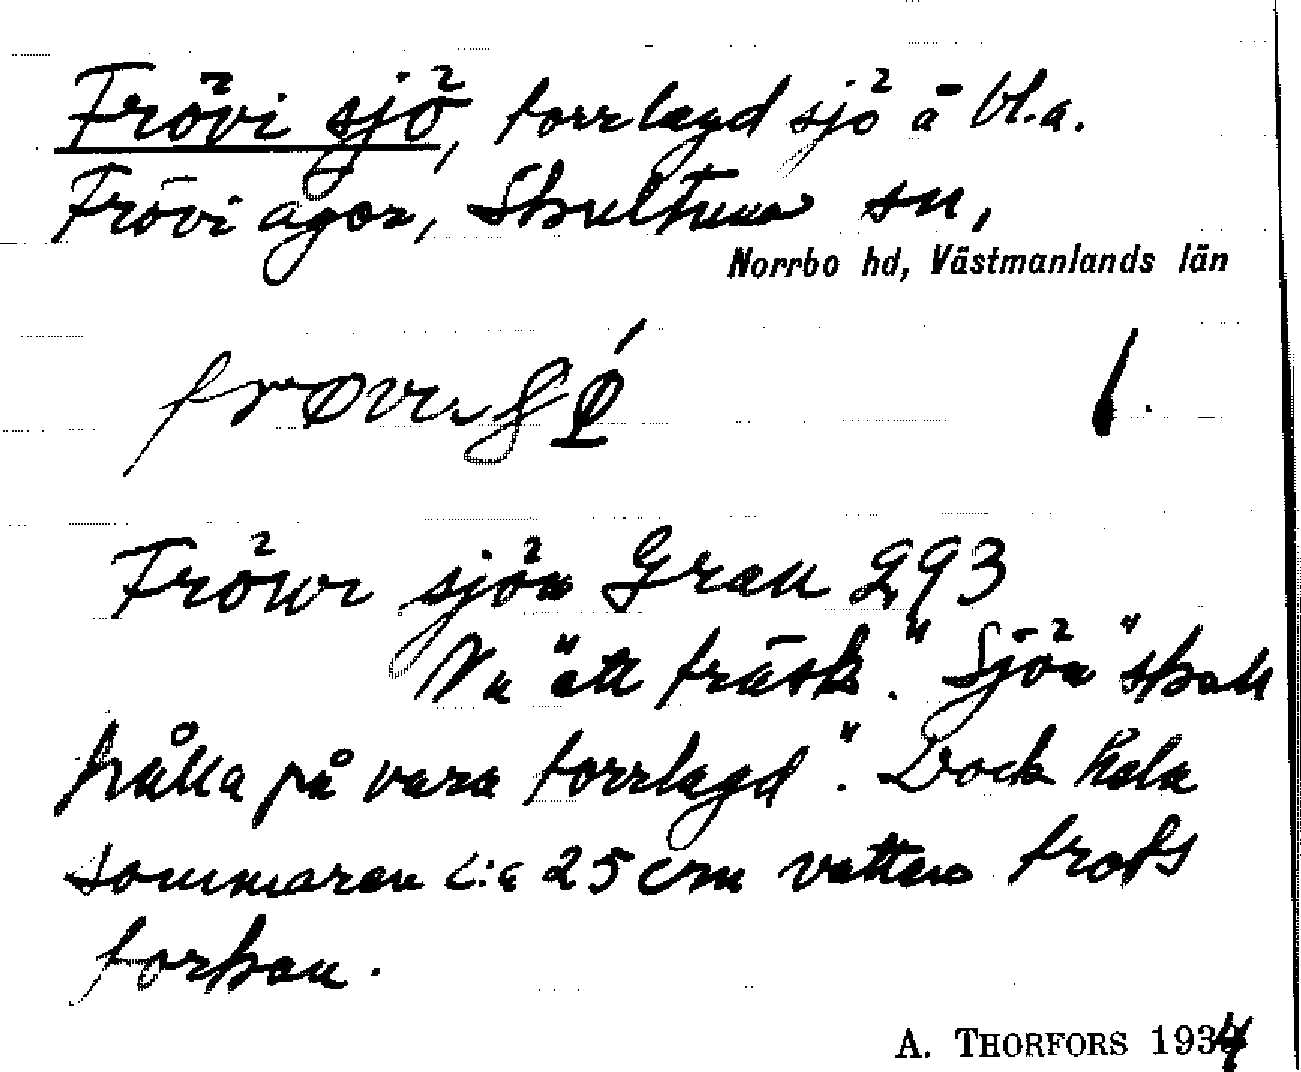 Frövi sjö, torrlagd sjö å bl.a.
Frövi ägor, Skultuna sn,
Norrbo hd, Västmanlands län
1.
Fröwi sjön Grau 293
Nu "ett träsk." Sjön "skall
hålla på vara torrlagd". Dock hela
sommaren c:a 25 cm vatten trots
torkan.
A. THORFORS 1934